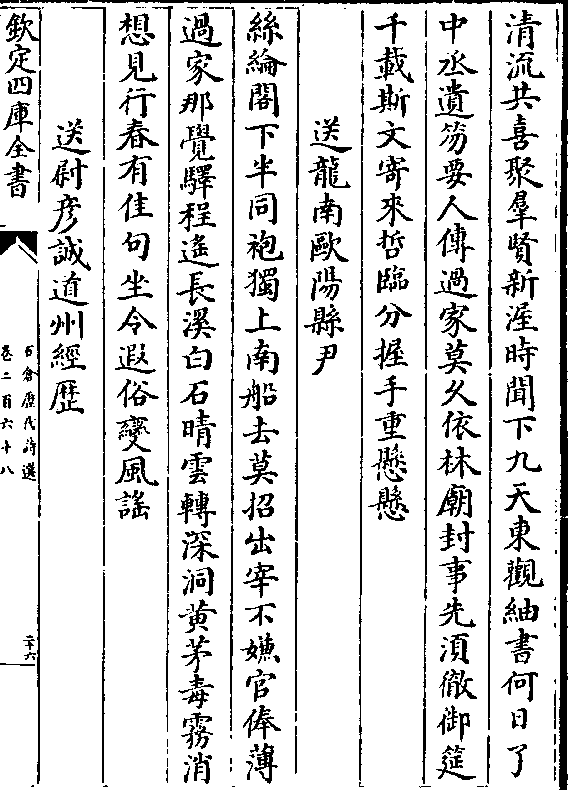 清流共喜聚羣賢新渥時聞下九天東觀紬書何日了
中丞遺笏要人傳過家莫久依林廟封事先須徹御筵
千載斯文寄來哲臨分握手重懸懸
送龍南歐陽縣尹
絲綸閣下半同袍獨上南船去莫招出宰不嫌官俸薄
過家那覺驛程遙長溪白石晴雲轉深洞黄茅毒霧消
想見行春有佳句坐令遐俗變風謡
送尉彦誠道州經歴
欽定四庫全書
石倉歷代詩選
卷二百六十八
二十六